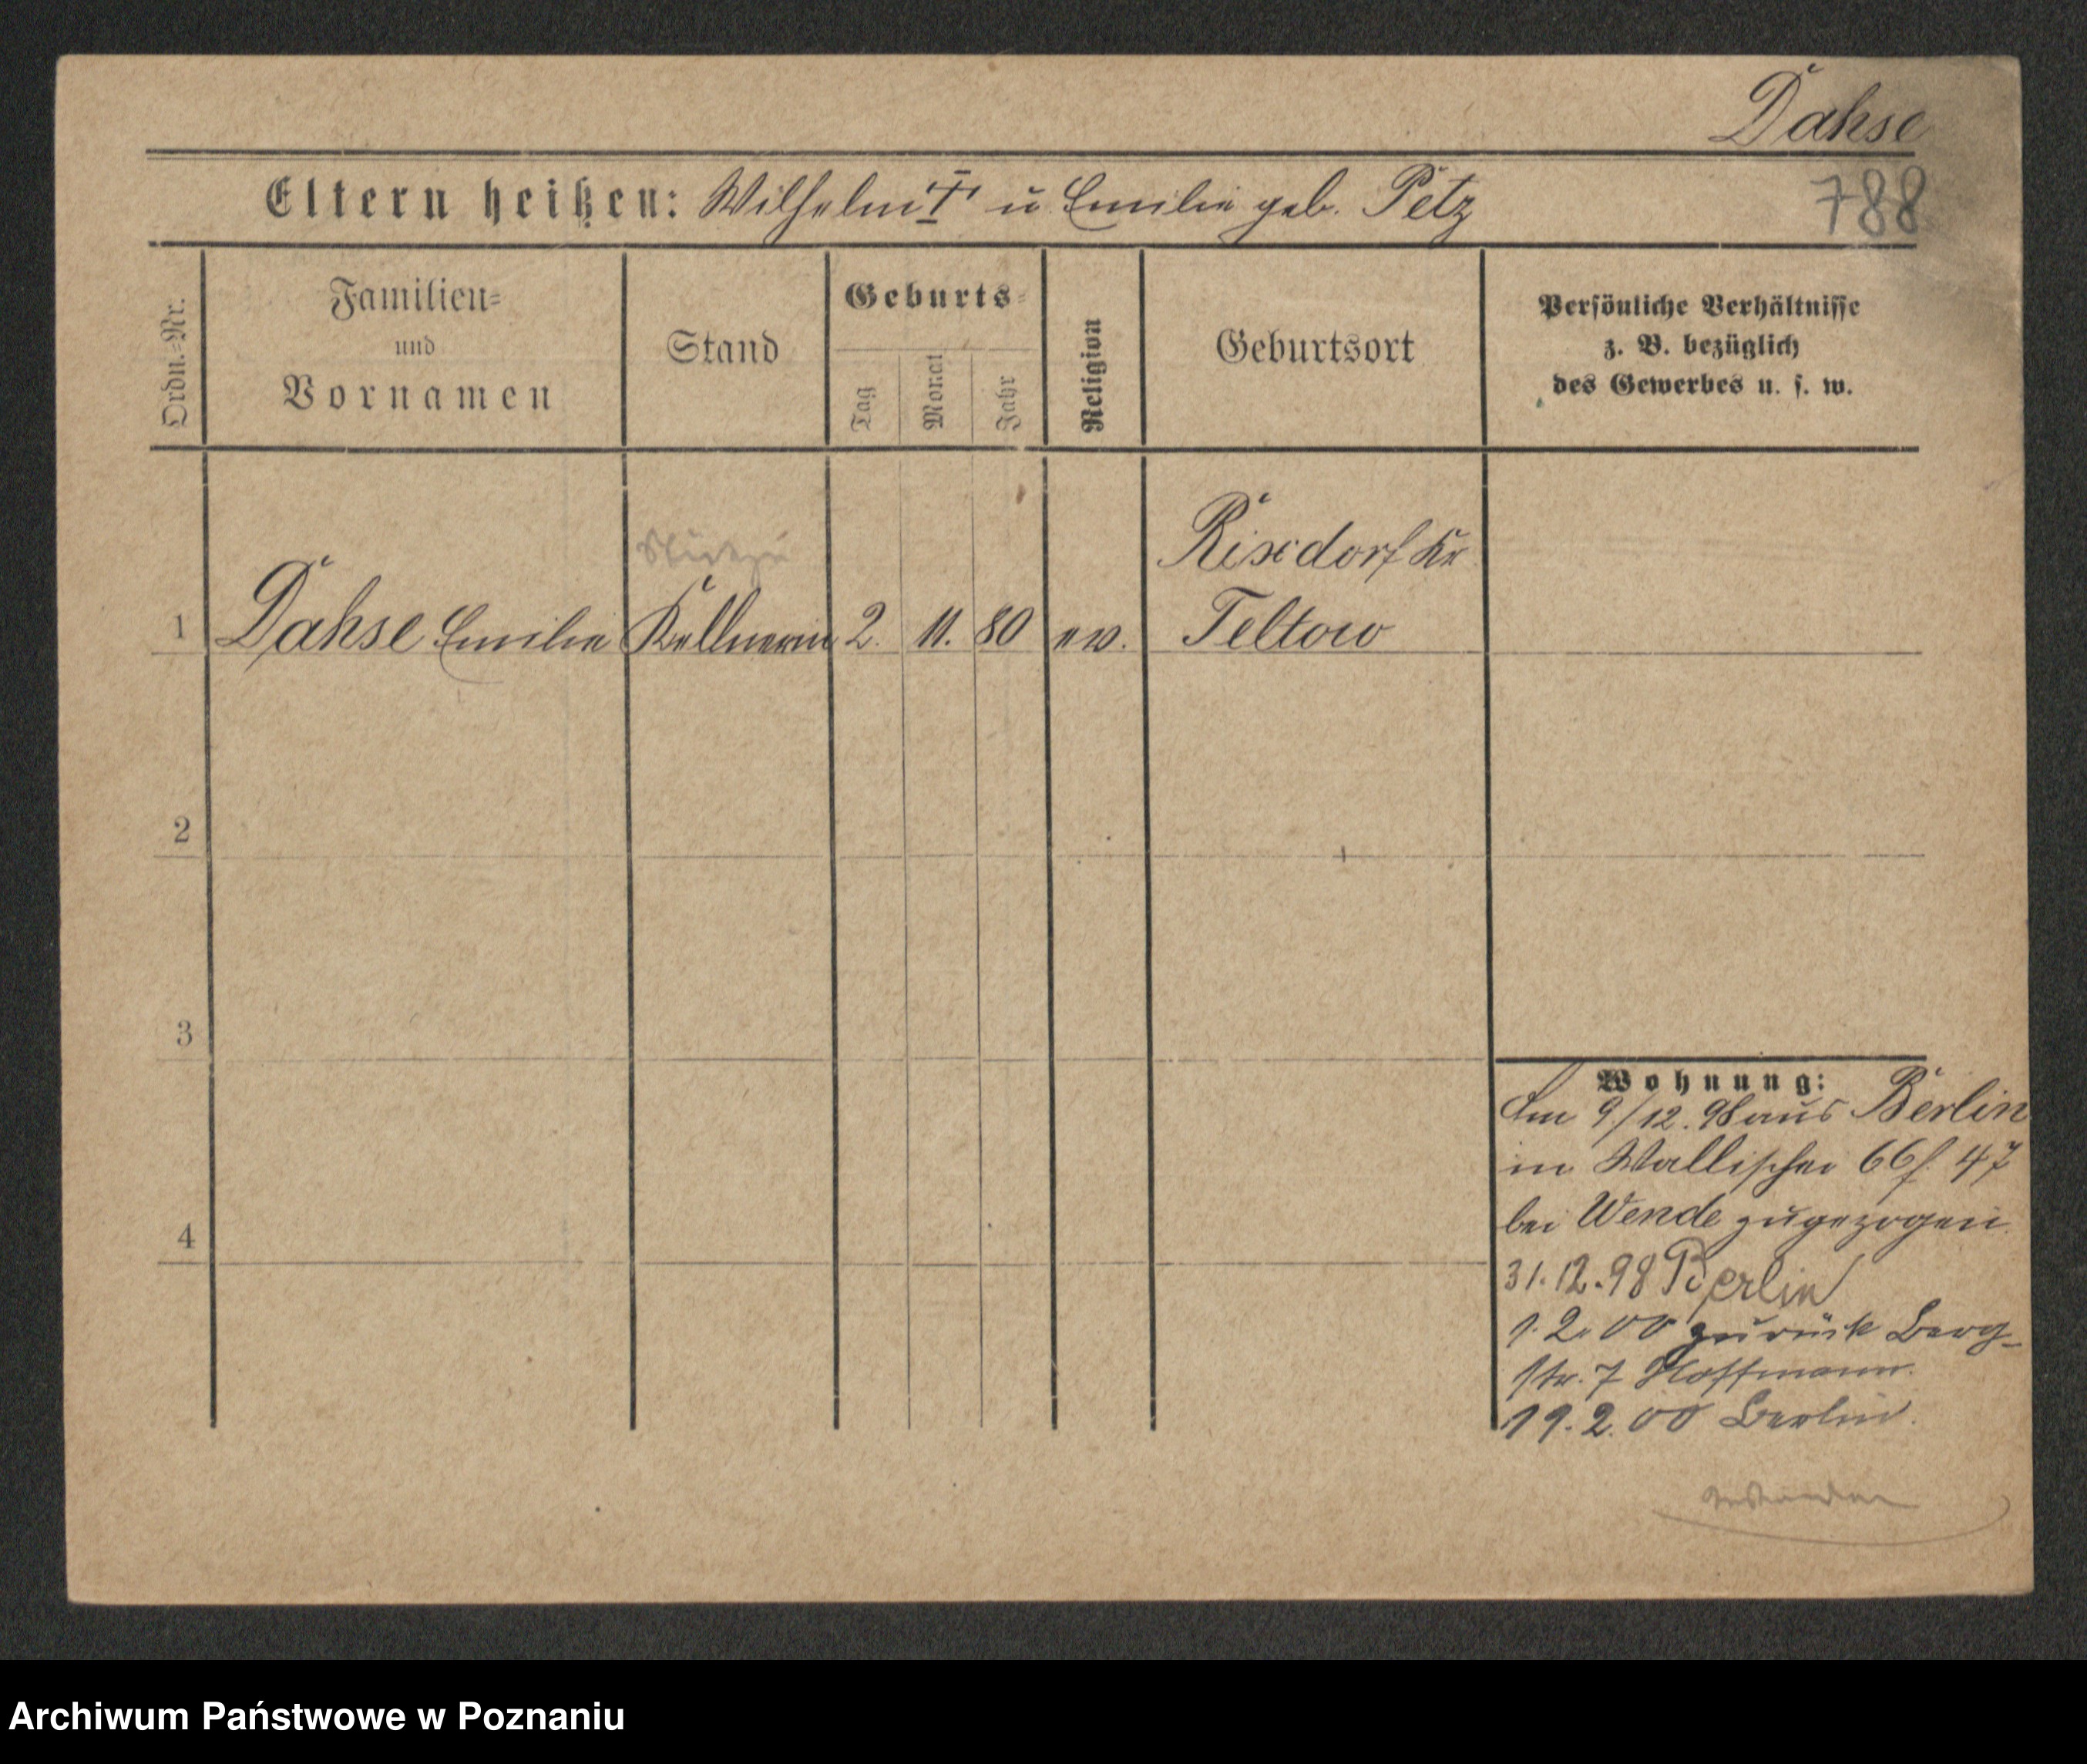 Dahse
Eltern heißen: Wilhelm † u. Emilie geb. Petz
788
Ordn.=Nr.
Familien=
und
Vornamen
Stand
Geburts=
Tag
Monat
Jahr
Religion
Geburtsort
Persönliche Verhältnisse
z. B. bezüglich
des Gewerbes u. s. w.
Rixdorf Kr
1 Dahse Emilie Kellnerin 2. 11. 80 ev. Teltow
2
3
4
Wohnung:
Am 9/12. 98 aus Berlin
in Wallischei 66/ 47
bei Wende zugezogen
31.12.98 Berlin
1.2.00 zurück Berg-
str. 7 Hoffmann.
19.2.00 Berlin.
Archiwum Państwowe w Poznaniu